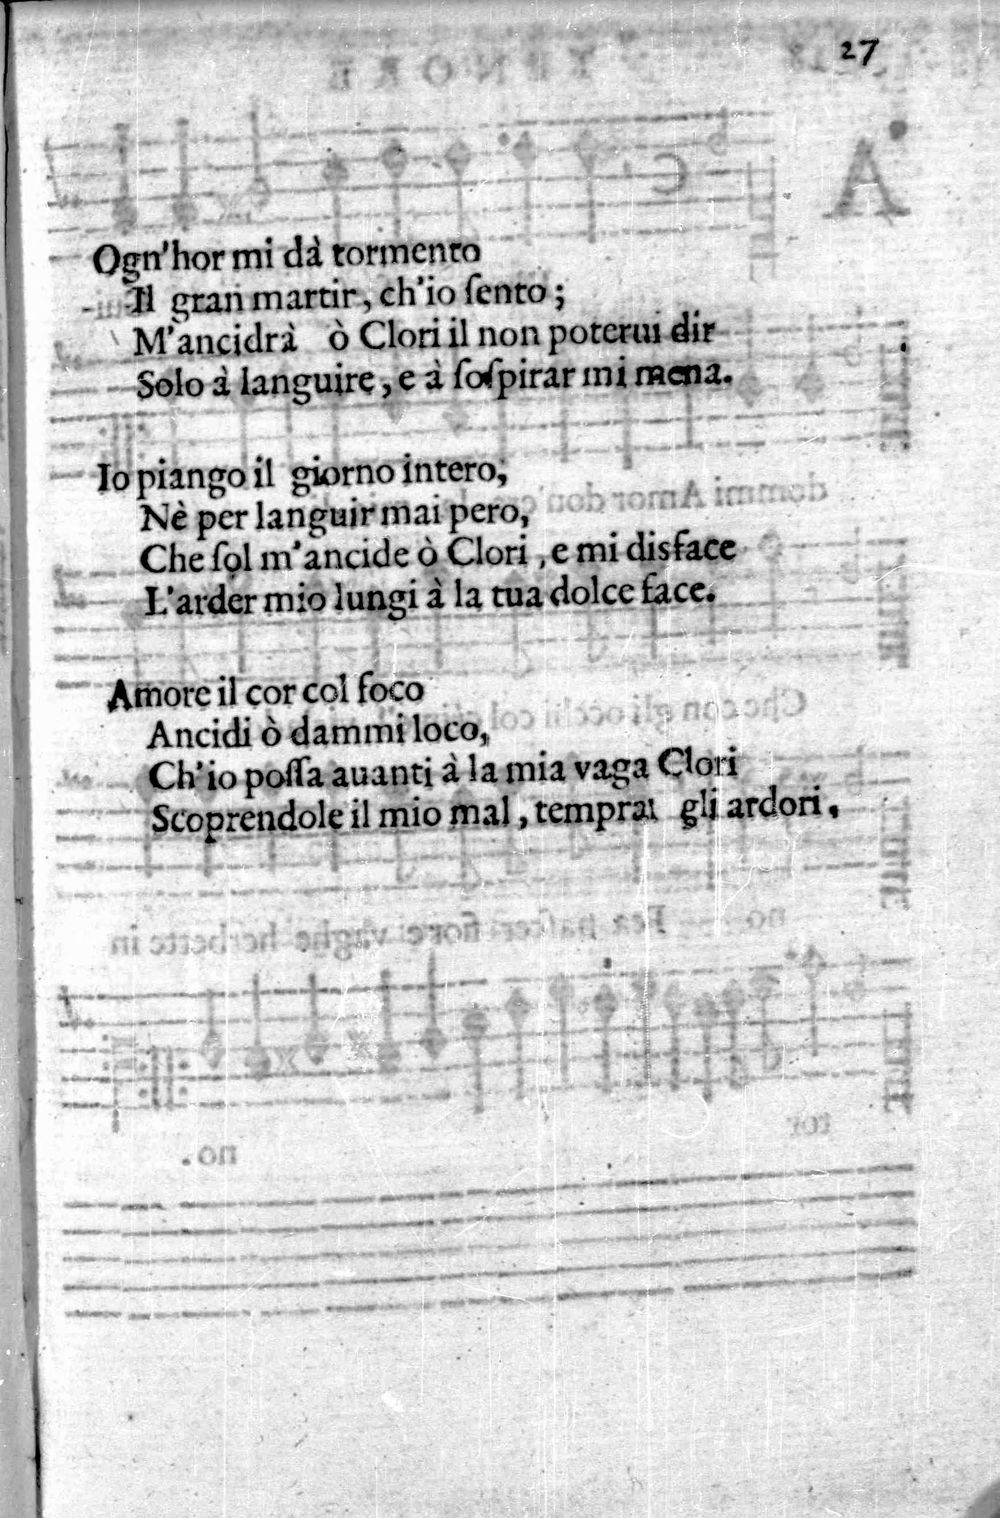 27
Ogn'hor mi dà tormento
Il gran martir, ch'io ſento;
M'ancidrà ò Clori il non poterui dir
Solo à languire, e à ſoſpirar mi mena.
Io piango il giorno intero,
Nè per languir mai pero,
Che ſol m'ancide ò Clori, e mi disface
L'arder mio lungi à la tua dolce face.
Amore il cor col foco
Ancidi ò dammi loco,
Ch'io poſſa auanti à la mia vaga Clori
Scoprendole il mio mal, temprar gli ardori.